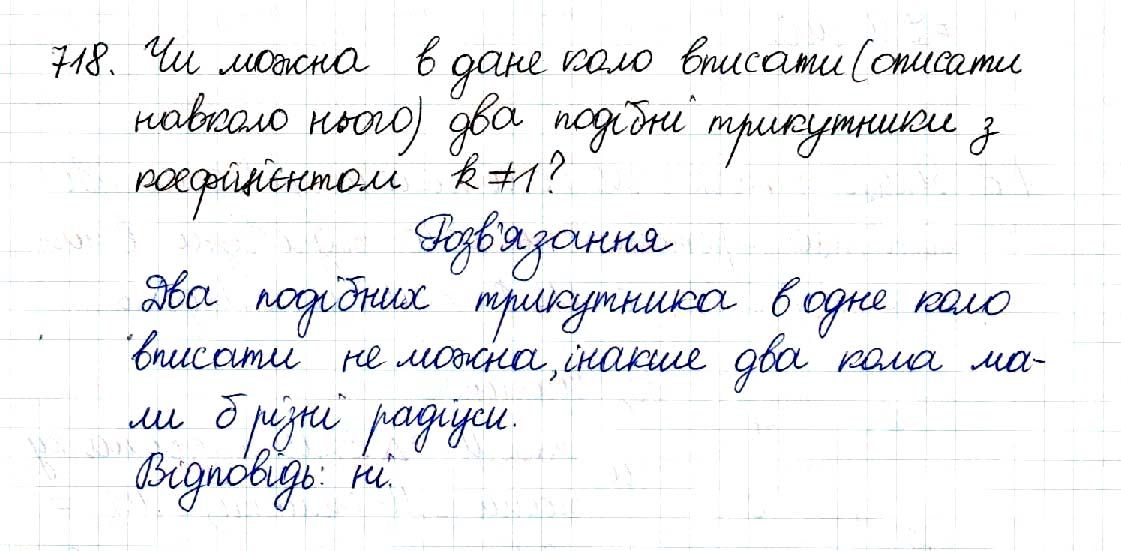 718. Чи можна в дане коло вписати (описати
навколо нього) два подібні трикутники з
коефіцієнтом k ≠ 1?
Розв'язання
Два подібних трикутника в одне коло
вписати не можна, інакше два кола ма-
ли б різні радіуси.
Відповідь: ні.